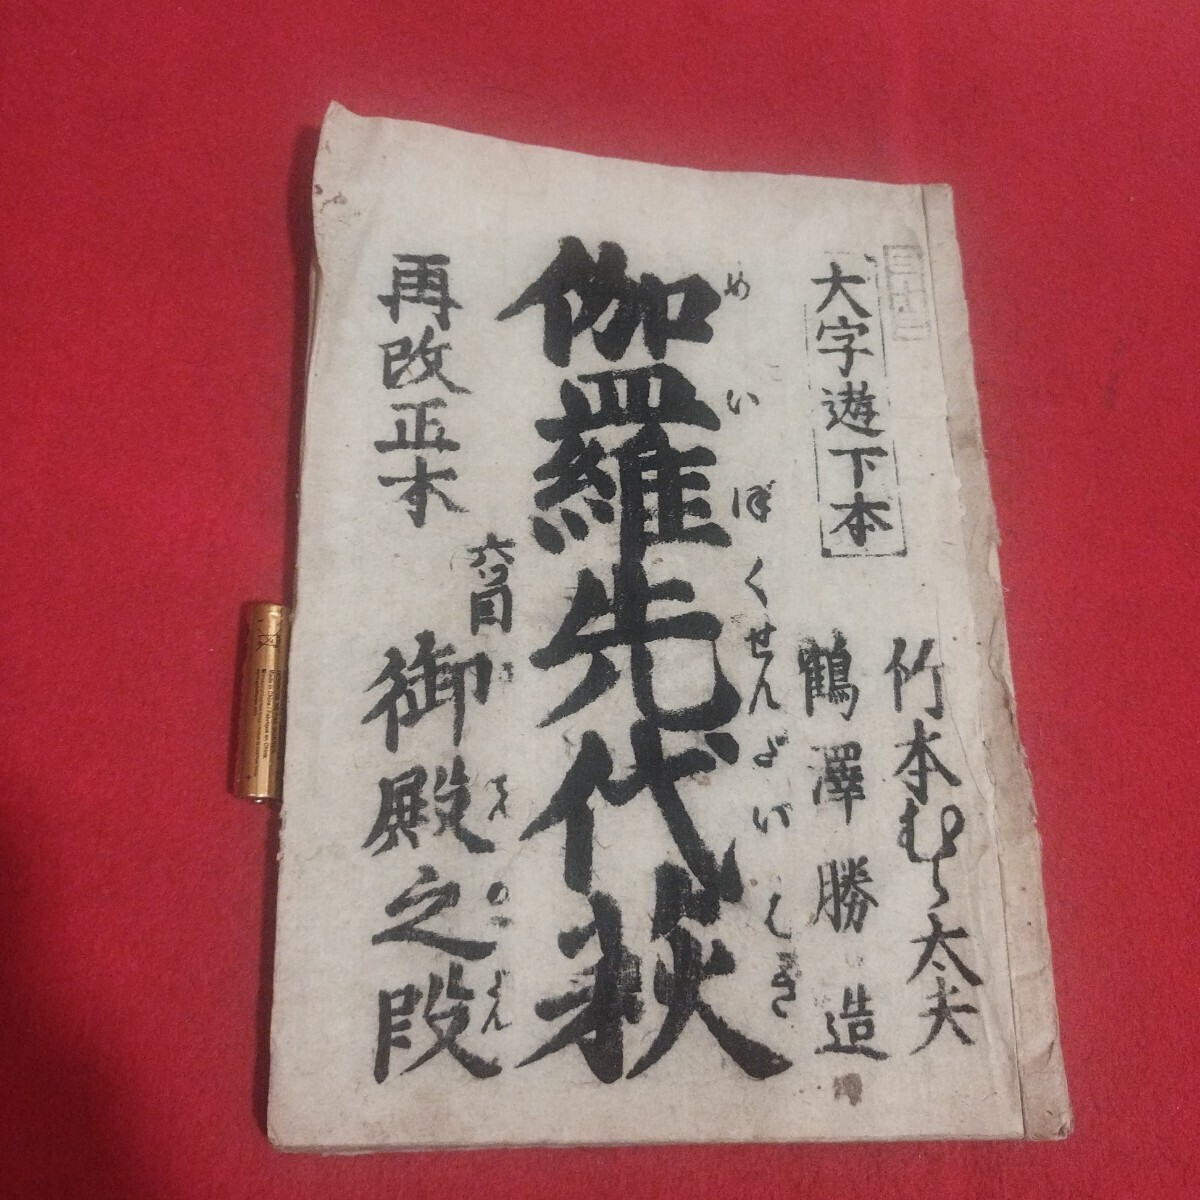 大字遊下本
竹本むら太夫
鶴澤勝造
伽羅先代萩
めいぼくせんだいはぎ
六ツ目
御殿之段
再改正本